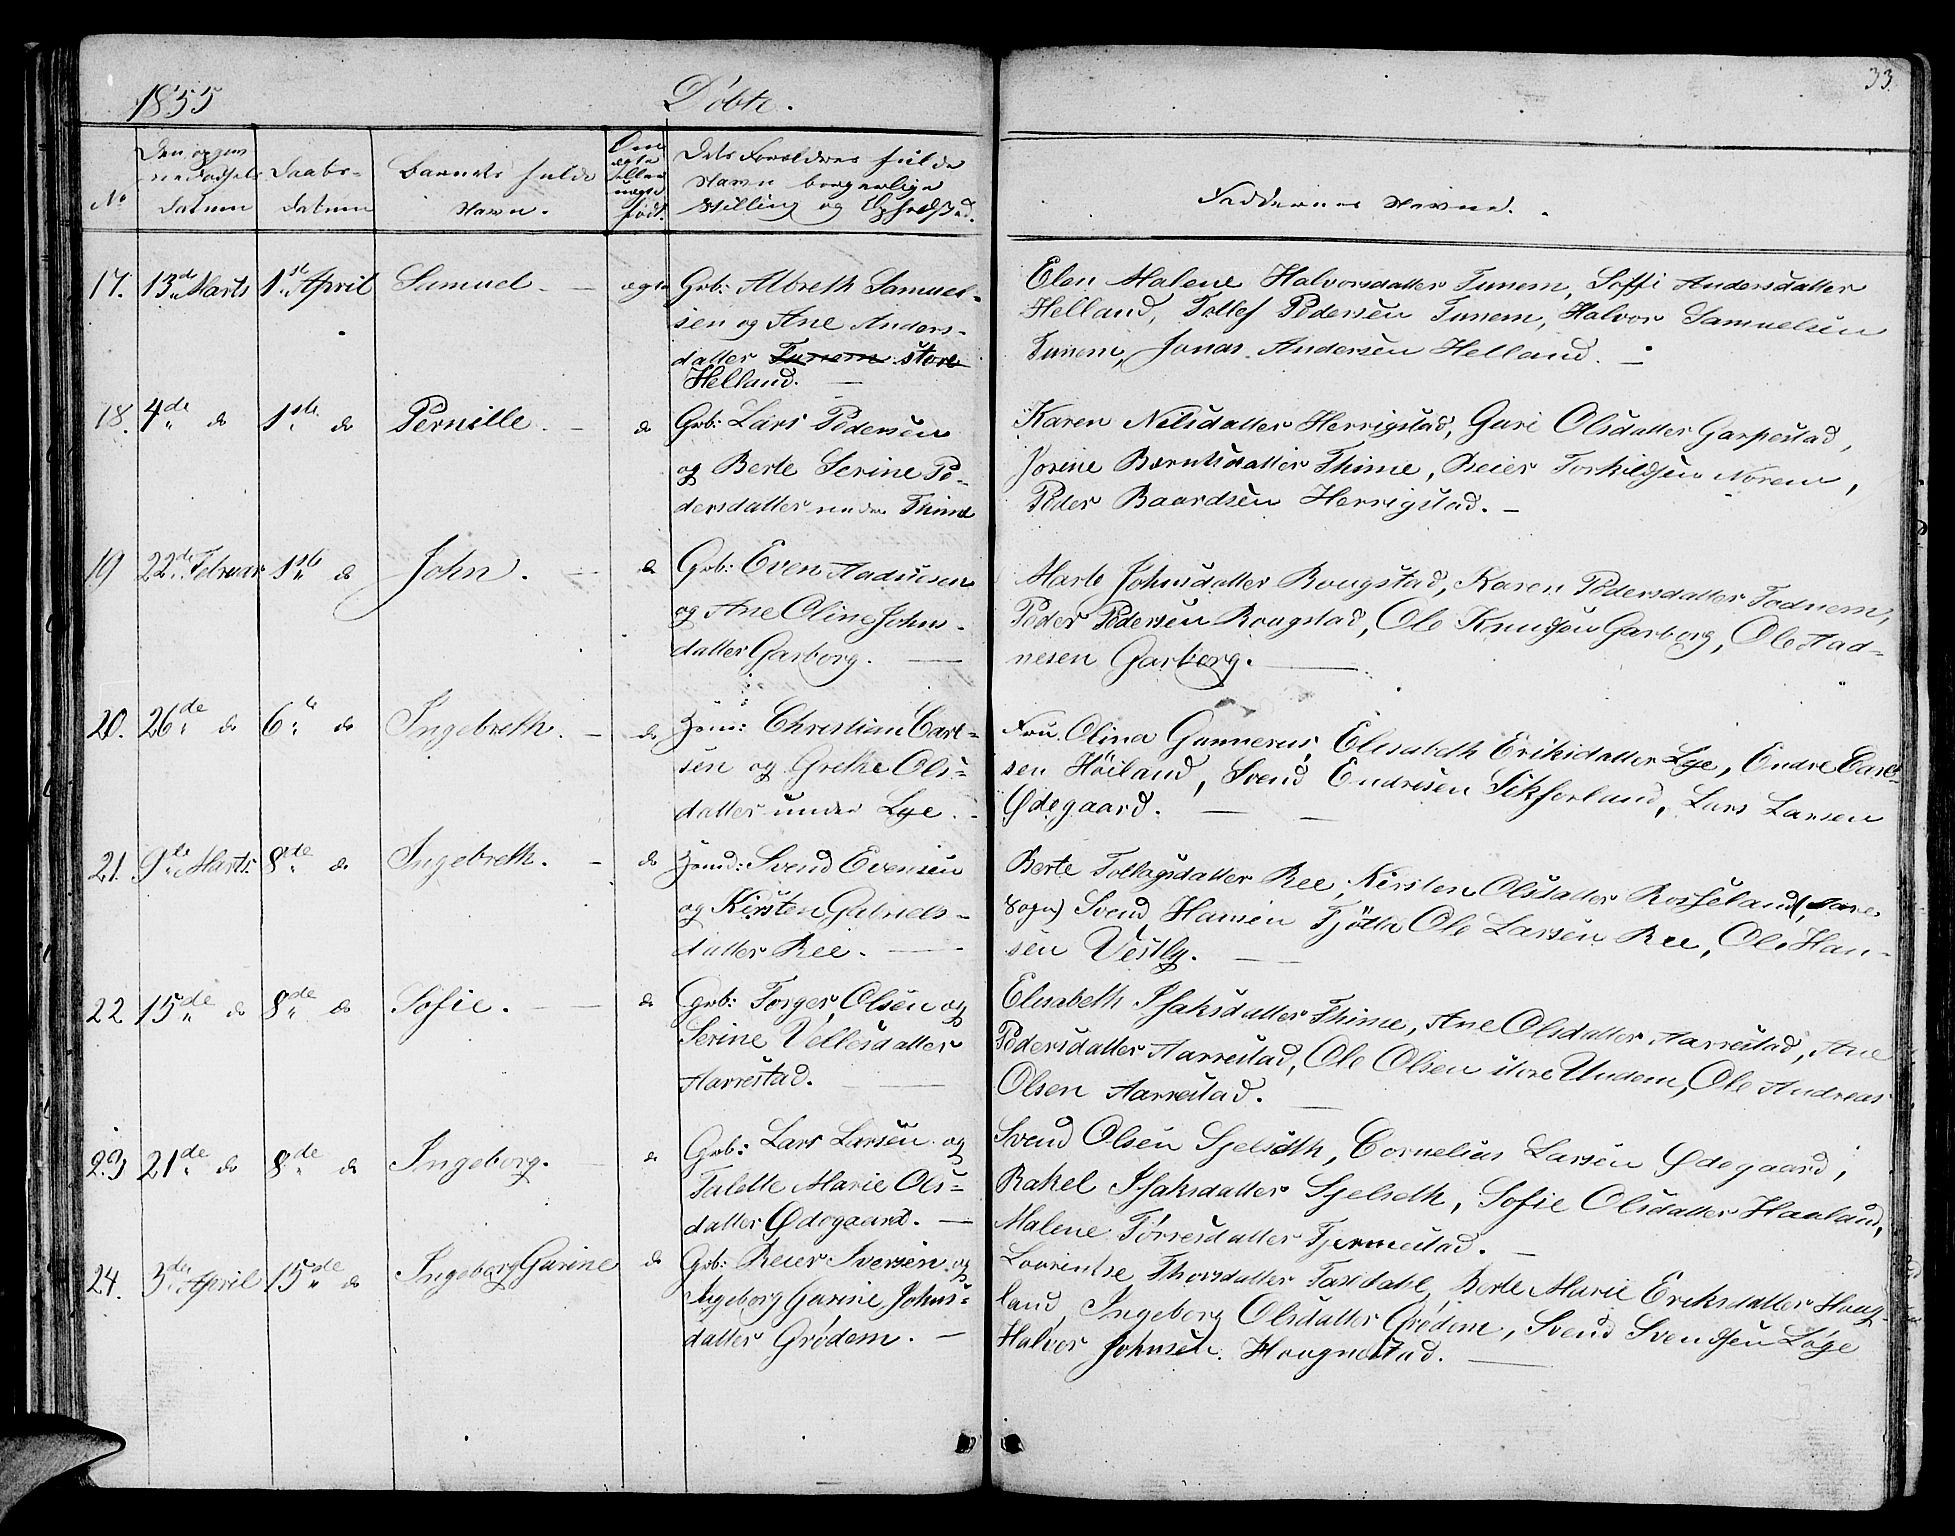 1855 Døbte. 33.
No Daabs- datum Barnets fulde Navn. Faddernes Navne.
17. 13de Marts 1ste April Samuel. ægte Grb: Albreth Samuel-
sen og Ane Anders-
datter Tunem store
Helland.
Elen Malene Halvorsdatter Tunem, Soffi Andersdatter
Helland, Tollef Pedersen Tunem, Halvor Samuelsen
Tunem, Jonas Andersen Helland.
18. 4de do 1ste do Pernille. do Grb: Lars Pedersen
og Berte Serine Pe-
dersdatter nedre Thime
Karen Nilsdatter Herrigstad, Guri Olsdatter Garpestad,
Jorine Berntsdatter Thime, Reier Torkildsen Norem,
Peder Baardsen Herrigstad.
19 22de Februar 1ste do John. do Grb: Even Aadnesen
og Ane Oline Johns-
datter Garborg.
Marte Johnsdatter Rougstad, Karen Pedersdatter Todnem,
Peder Pedersen Rougstad, Ole Knudsen Garborg, Ole Aad-
nesen Garborg.
20. 26de do 6te do Ingebreth. do Huusm: Christian Carl-
sen og Grethe Ols-
datter under Lye.
Fru Olina Gunnerus, Elisabeth Eriksdatter Lye, Endre Carl-
sen Höiland, Svend Endresen Sikforland, Lars Larsen
Ødegaard.
21. 9de Marts. 8de do Ingebreth. do Huusmd: Svend Evensen
og Kirsten Gabriels-
datter Ree.
Berte Tollagsdatter Ree, Kirsten Olsdatter Rosseland,
Sogn) Svend Hansen Tjötte, Ole Larsen Ree, Ole Han-
sen Vestly.
22 15de do 8de do Sofie. do Grb: Torger Olsen og
Serine Vellesdatter
Aarrestad.
Elisabeth Isaksdatter Thime, Ane Olsdatter Aarrestad, Ane
Pedersdatter Aarrestad, Ole Olsen store Undem, Ole Andreas
Olsen Aarrestad.
23 21de do 8de do Ingeborg. do Grb: Lars Larsen og
Talette Marie Ols-
datter Ødegaard.
Svend Olsen Sjelseth, Cornelius Larsen Ødegaard,
Rakel Isaksdatter Sjelseth, Sofie Olsdatter Haaland,
Malene Tørresdatter Tjermestad.
24. 3die April 15de do Ingeborg Gurine do Grb: Reier Iversen og
Ingeborg Gurine Johns-
datter Grødem.
Laurentse Thorsdatter Taxdahl, Berte Marie Eriksdatter Houg-
land, Ingeborg Olsdatter Grødem, Svend Svendsen Løge
Halvor Johnsen Hougnestad.